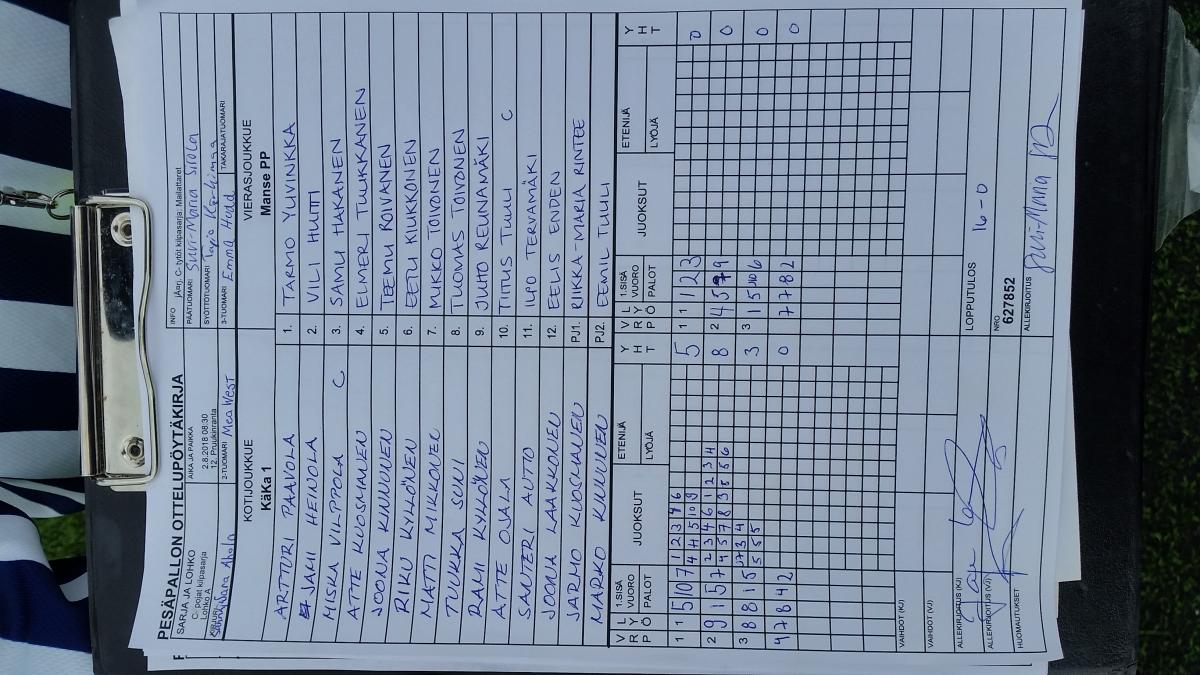 PESÄPALLON OTTELUPÖYTÄKIRJA
SARJA JA LOHKO
C- pojat kilpasarja
Lohko A
KIRJURI
Ahola
AIKA JA PAIKKA
2.8.2018 08:30
12. Prujukinranta
2-TUOMARI Mea West
INFO Jäen, C- tytöt kilpasarja: Mailattaret
PÄÄTUOMARI Suvi-Maria Sirola
SYÖTTÖTUOMARI Tapio
3-TUOMARI Emma Head
TAKARAJATUOMARI
KOTIJOUKKUE
KäKa 1
VIERASJOUKKUE
Manse PP
ARTTURI PAAVOLA 1. TARMO YLIVINKKA
JAMI HEINOLA 2. VILI HUTTI
MISKA VILPPOLA C 3. SAMU HAKANEN
ATTE KUOSMANEN 4. ELMERI TUUKKANEN
JOONA KINNUNEN 5. TEEMU ROIVANEN
RIKU KYLLÖNEN 6. EETU KIUKKONEN
MATTI MIKKONEN 7. MIKKO TOIVONEN
TUUKKA SUNI 8. TUOMAS TOIVONEN
RAMI KYLLÖNEN 9. JUHO REUNAMÄKI
ATTE OJALA 10. TIITUS TUULI C
SANTERI AUTIO 11. ILPO TERVAMÄKI
JOONA LAAKKONEN 12. EELIS ENDEN
JARMO KUOSMANEN PJ1. RIIKKA-MARIA RINTEE
MARKO KINNUNEN PJ2. EEMIL TUULI
V R P L Y Ö 1.SISÄ VUORO PALOT JUOKSUT ETENIJÄ LYÖJÄ Y H T V R P L Y Ö 1.SISÄ VUORO PALOT JUOKSUT ETENIJÄ LYÖJÄ Y H T
1 1 5 10 7 1 2 3 4 6 5 1 1 1 2 3 0
4 4 5 10 9
2 9 1 5 7 2 3 4 6 1 2 3 4 8 2 4 5 7 9 0
4 5 7 8 3 5 5 6
3 8 8 1 5 3 4 3 3 1 5 10 6 0
5 5 5
4 7 8 4 2 0 7 7 8 2 0
VAIHDOT (KJ)
VAIHDOT (VJ)
ALLEKIRJOITUS (KJ)
ALLEKIRJOITUS (VJ)
HUOMAUTUKSET
LOPPUTULOS 16-0
NRO
627852
ALLEKIRJOITUS